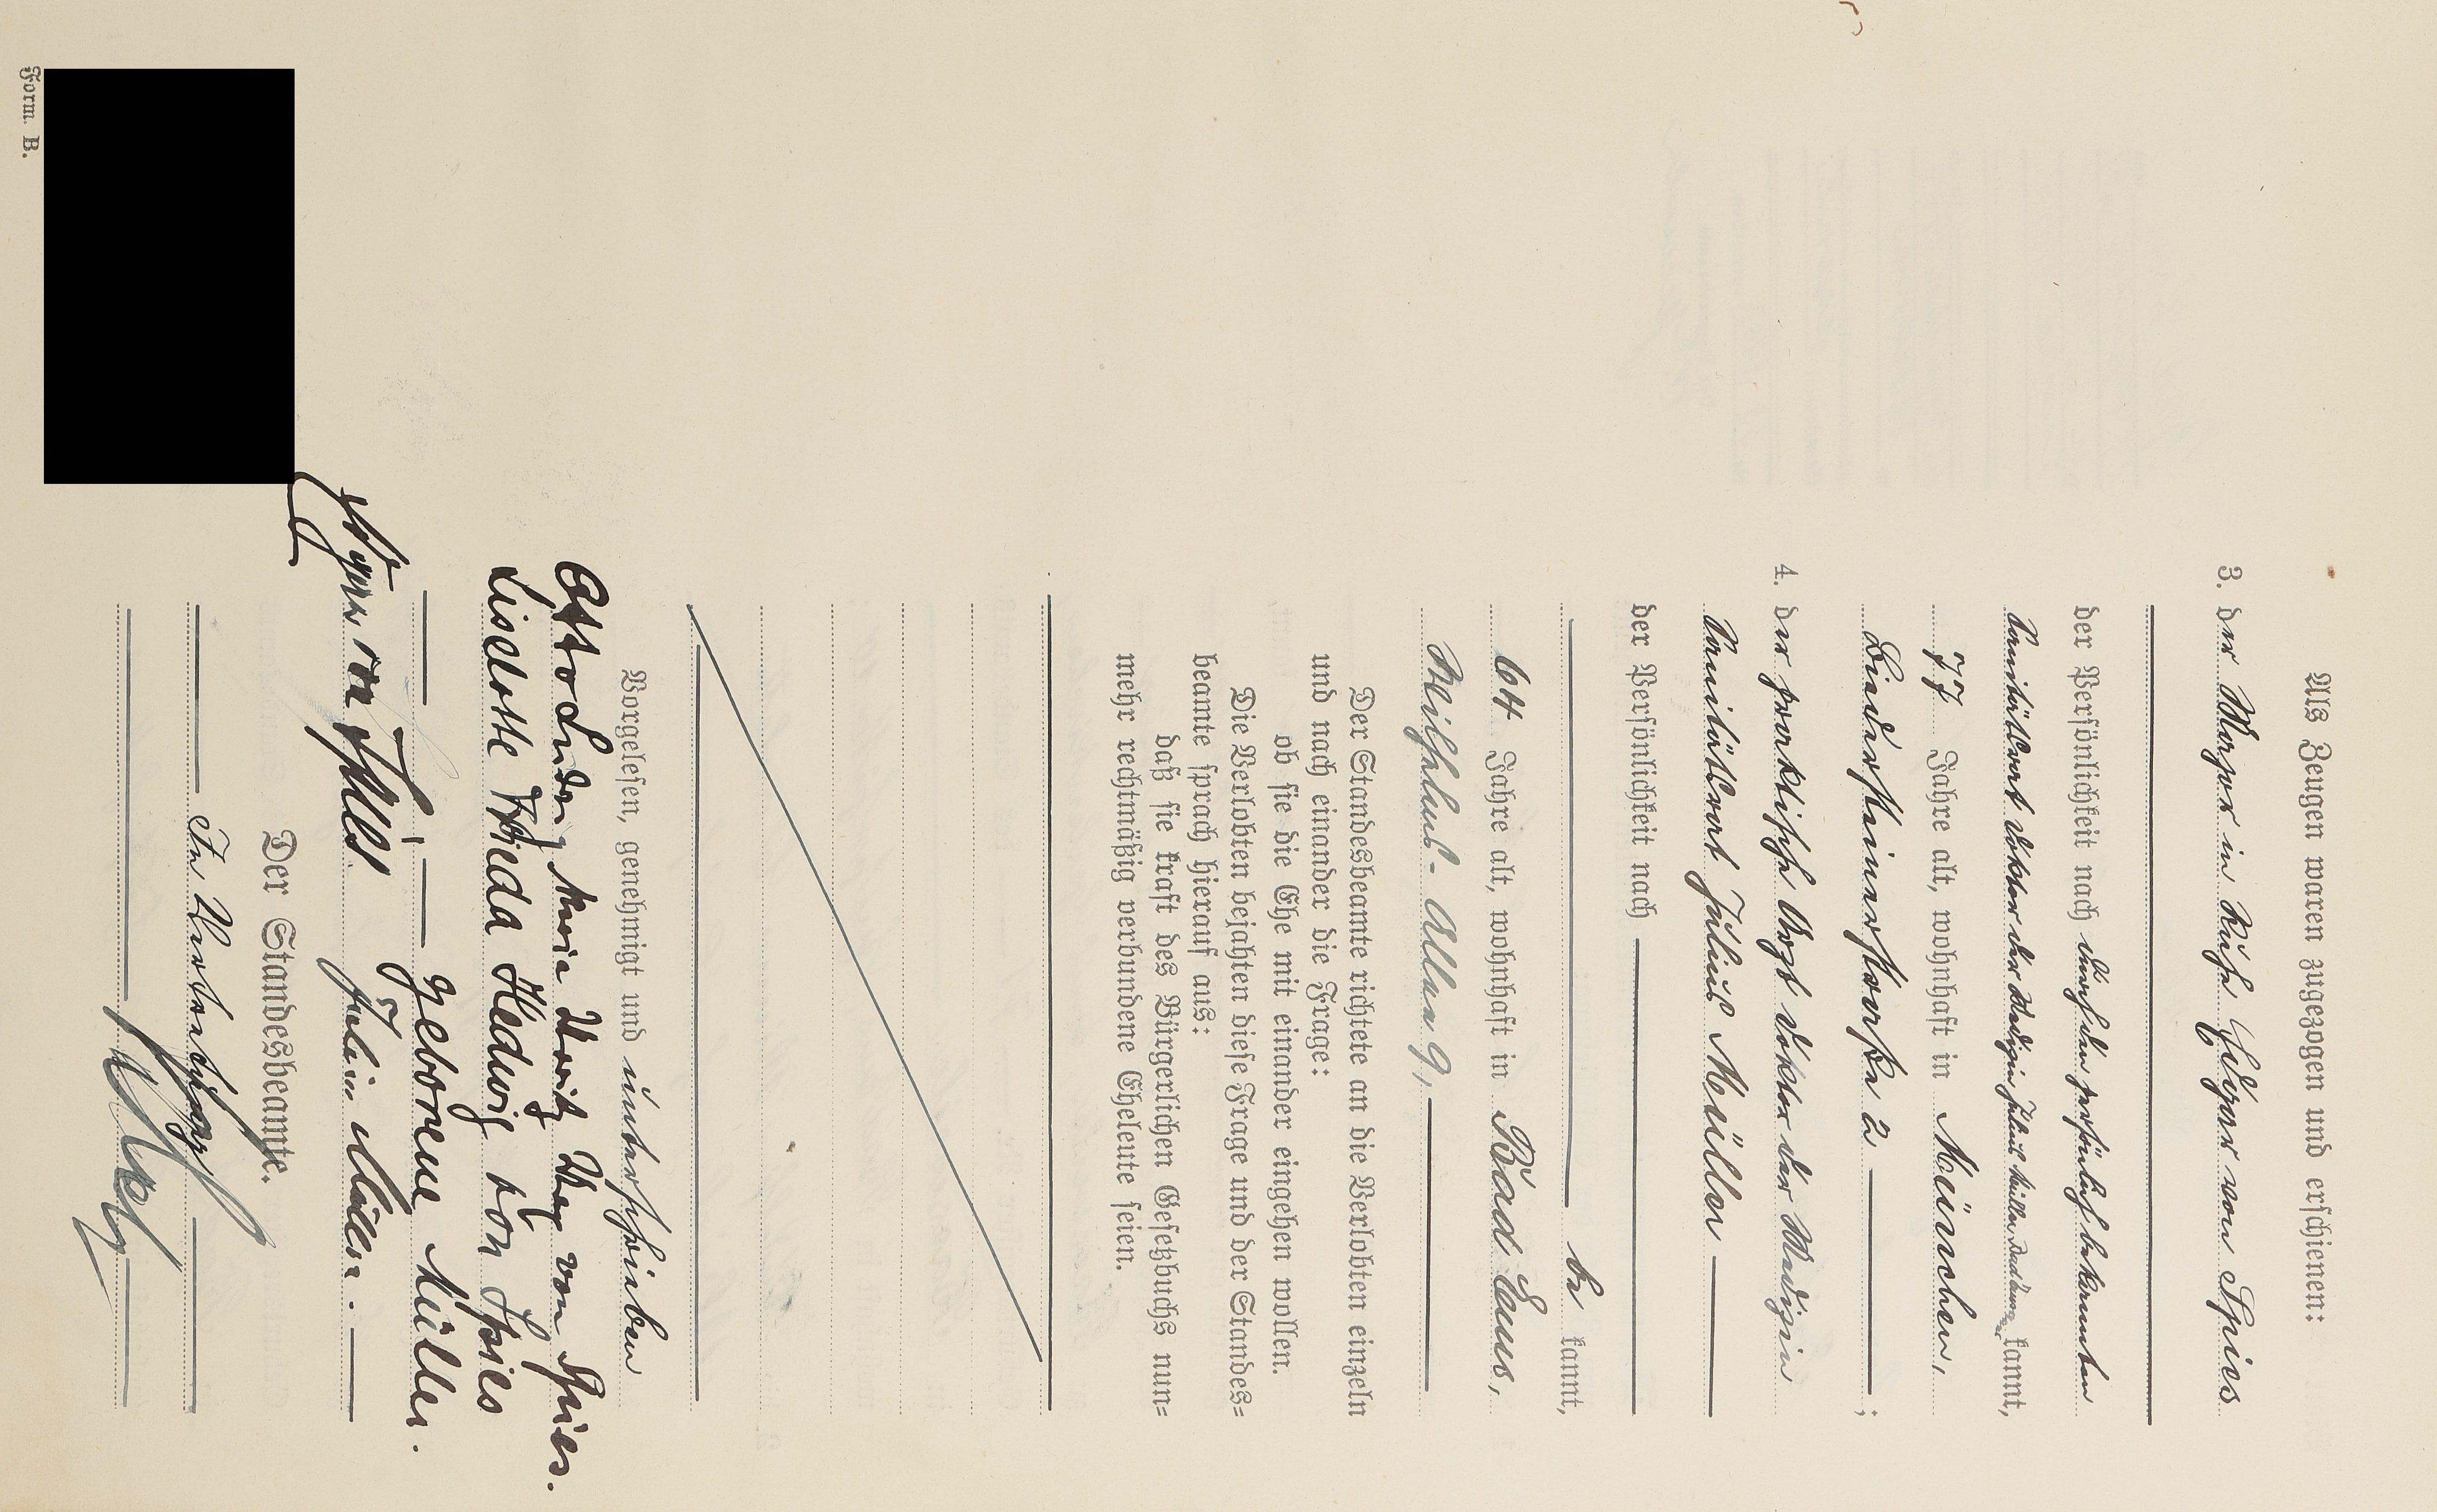 Als Zeugen waren zugezogen und erschienen:
3. der Major in Ruhe Edgar von Spies
der Persönlichkeit nach durch den persönlich bekannten
Sanitätsrat Doktor der Medizin Julius Müller kannt,
77 Jahre alt, wohnhaft in München,
Biedersteinerstraße 2 ;
4. der praktische Arzt Doktor der Medizin
Sanitätsrat Julius Müller
der Persönlichkeit nach
be kannt,
64 Jahre alt, wohnhaft in Bad Ems,
Wilhelms-Allee 9,
Der Standesbeamte richtete an die Verlobten einzeln
und nach einander die Frage:
ob sie die Ehe mit einander eingehen wollen.
Die Verlobten bejahten diese Frage und der Standes=
beamte sprach hierauf aus:
daß sie kraft des Bürgerlichen Gesetzbuchs nun=
mehr rechtmäßig verbundene Eheleute seien.
Vorgelesen, genehmigt und unterschrieben
Otto Ludwig Maria Moritz von Spies.
Liselotte Frieda Hedwig von Spies
geborene Müller.
Edgar von Spies Julius Müller.
Der Standesbeamte.
In Vertretung
Form. B.